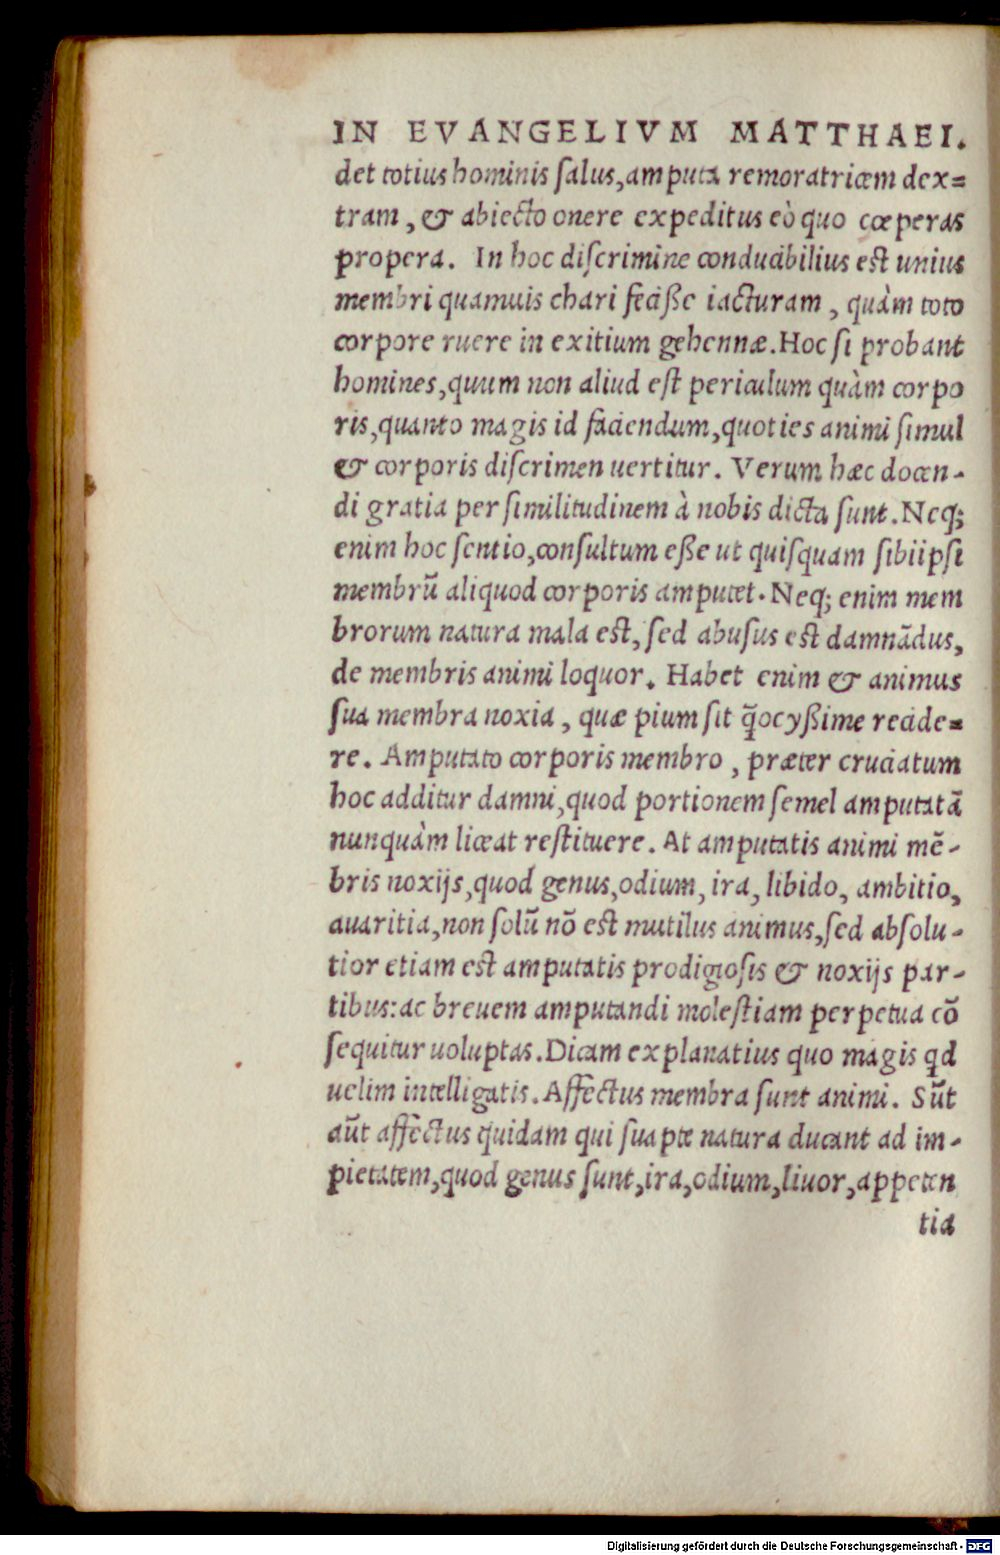 IN EVANGELIVM MATTHAEI.
det totius hominis ſalus,amputa remoratricem dex=
tram, & abiecto onere expeditus eò quo cœperas
propera. In hoc diſcrimine conducibilius est unius
membri quamuis chari feciße iacturam, quàm toto
corpore ruere in exitium gehennæ.Hoc ſi probant
homines,quum non aliud eſt periculum quàm corpo
ris,quanto magis id faciendum,quoties animi ſimul
& corporis diſcrimen uertitur. Verum hæc docen-
di gratia per ſimilitudinem à nobis dicta ſunt.Neq;
enim hoc ſentio,conſultum eße ut quiſquam ſibiipſi
membrũ aliquod corporis amputet.Neq; enim mem
brorum natura mala eſt, ſed abuſus eſt damnãdus,
de membris animi loquor. Habet enim & animus
ſua membra noxia, quæ pium ſit q̃ocyßime recide=
re. Amputato corporis membro, præter cruciatum
hoc additur damni,quod portionem ſemel amputatã
nunquàm liceat reſtituere. At amputatis animi mẽ-
bris noxijs,quod genus,odium, ira, libido, ambitio,
auaritia,non ſolũ nõ eſt mutilus animus,ſed abſolu-
tior etiam eſt amputatis prodigioſis & noxijs par-
tibus:ac breuem amputandi moleſtiam perpetua cõ
ſequitur uoluptas.Dicam explanatius quo magis qd
uelim intelligatis.Affectus membra ſunt animi. Sũt
aũt affectus quidam qui ſuapte natura ducant ad im-
pietatem,quod genus ſunt,ira,odium,liuor,appeten
tia
Digitalisierung gefördert durch die Deutsche Forschungsgemeinschaft - DFG